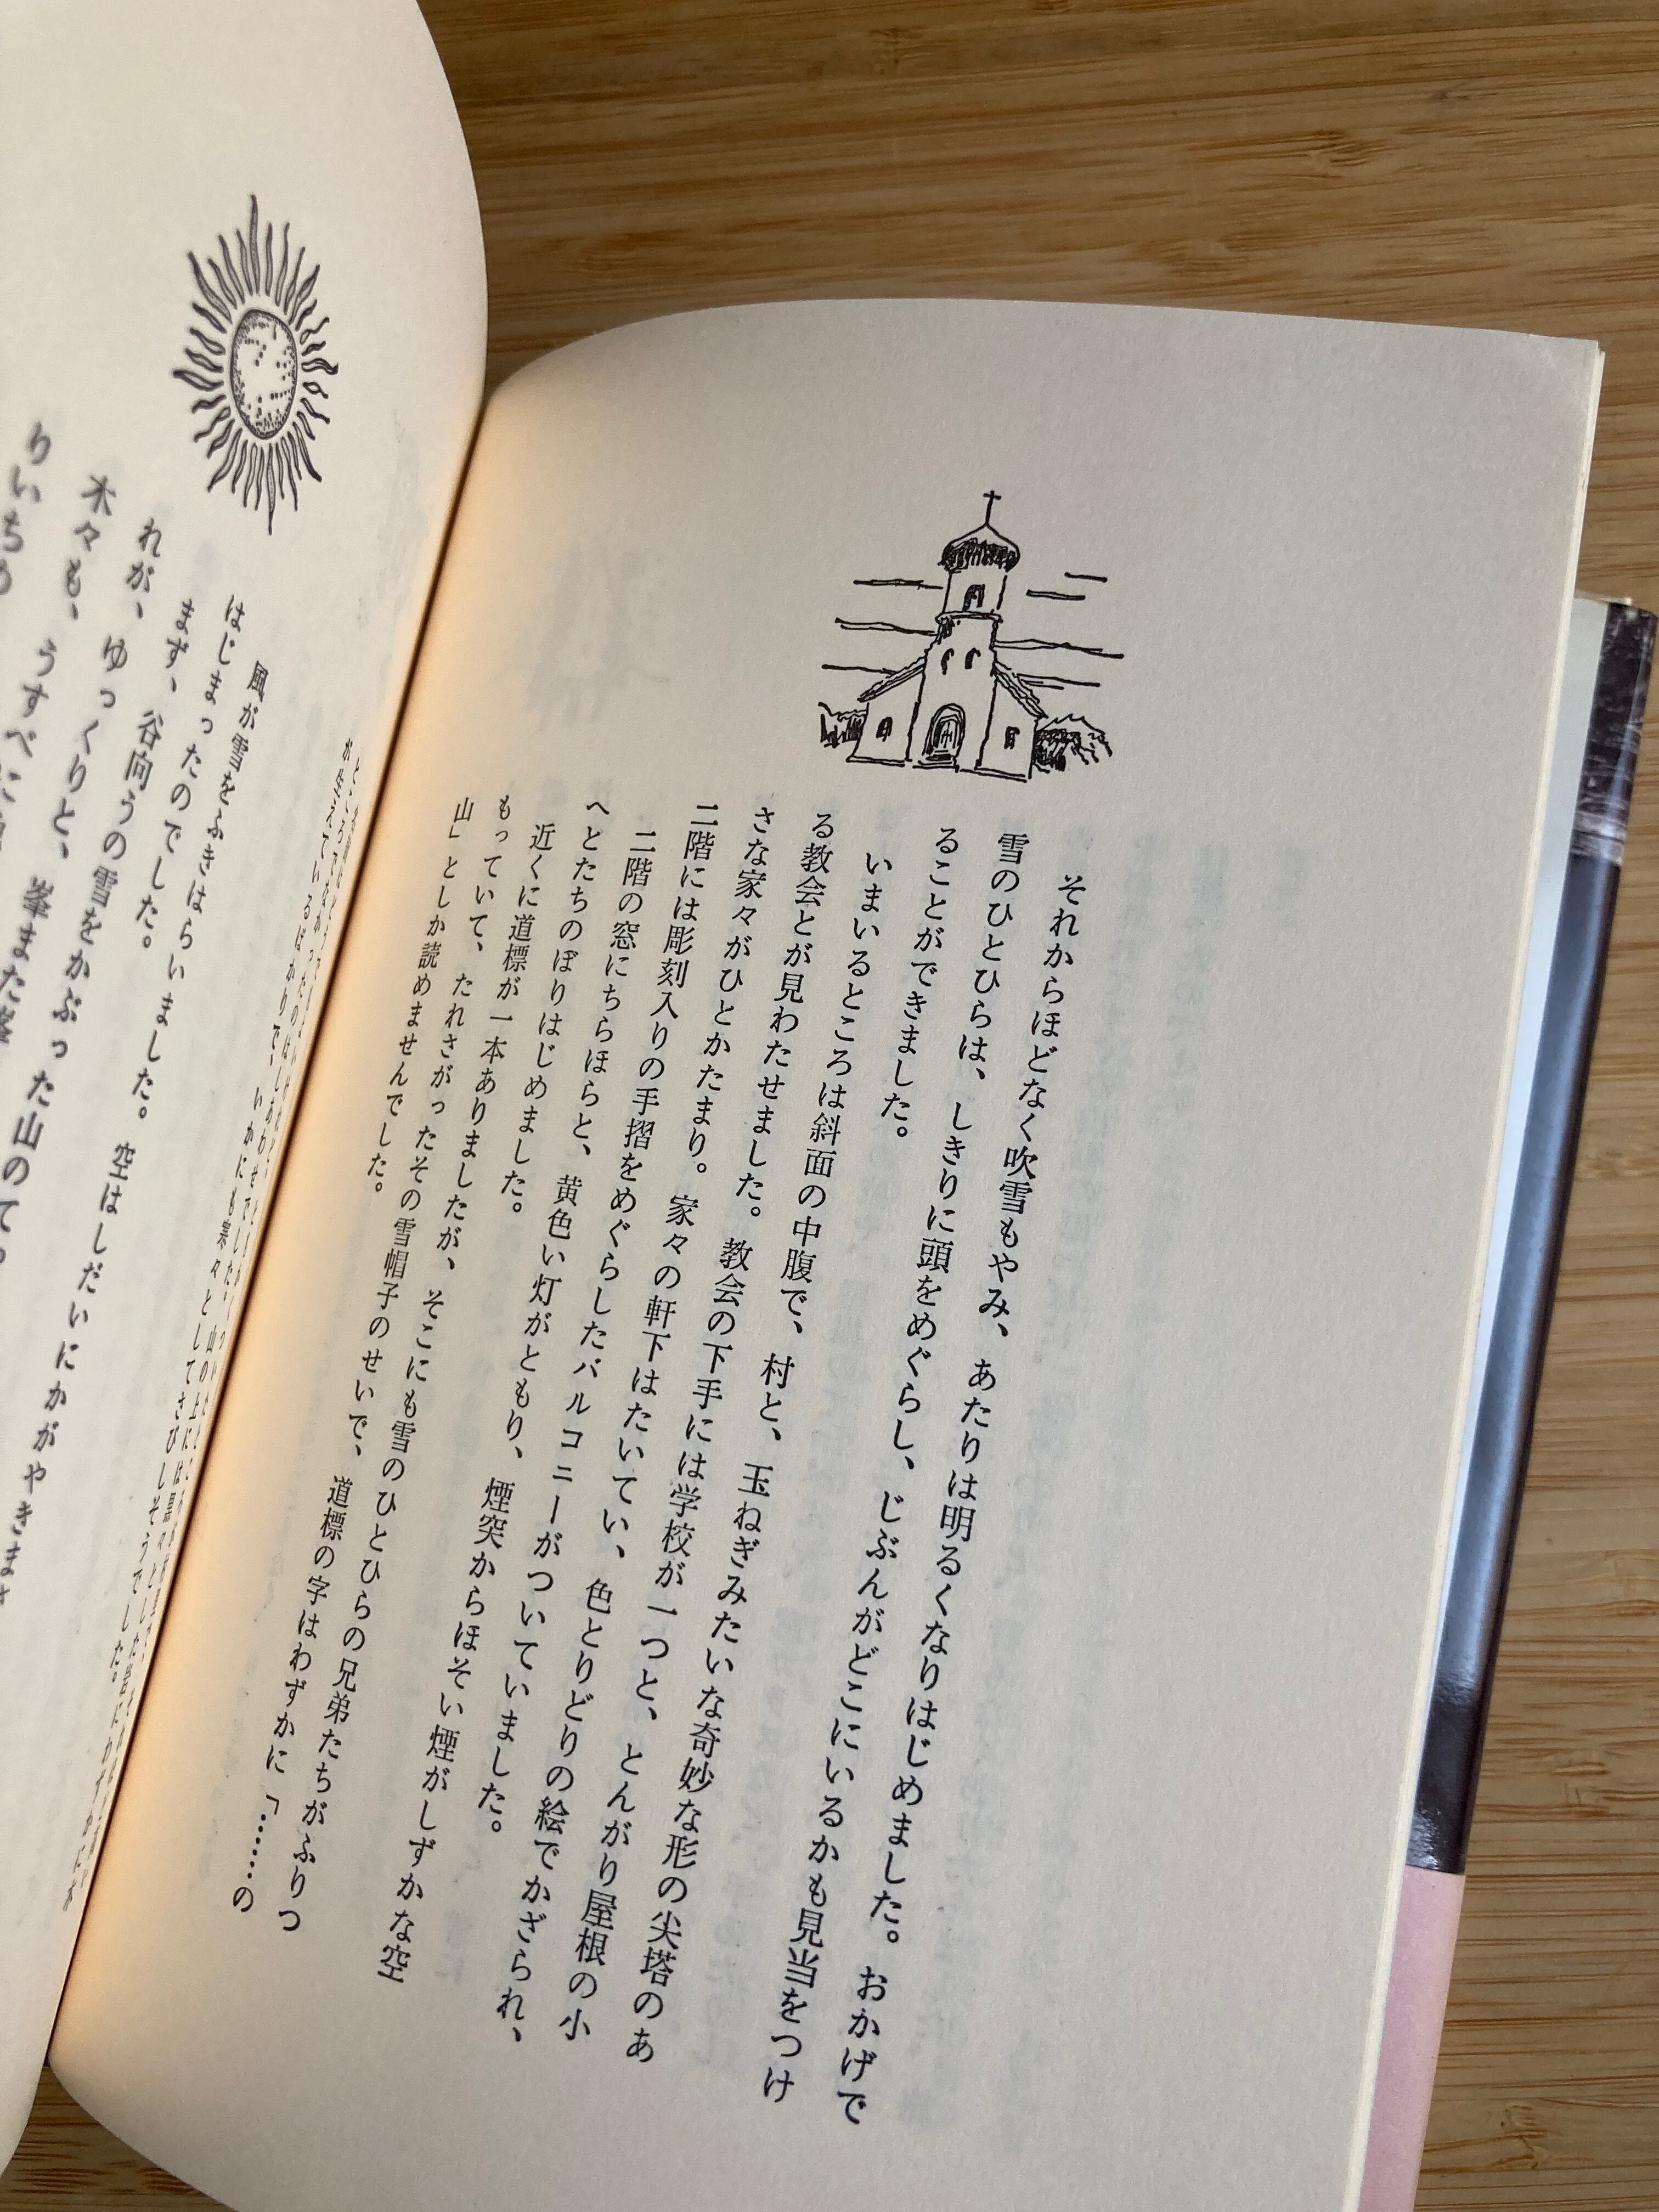 それからほどなく吹雪もやみ、あたりは明るくなりはじめました。おかげで
雪のひとひらは、しきりに頭をめぐらし、じぶんがどこにいるかも見当をつけ
ることができました。
いまいるところは斜面の中腹で、村と、玉ねぎみたいな奇妙な形の尖塔のあ
る教会とが見わたせました。教会の下手には学校が一つと、とんがり屋根の小
さな家々がひとかたまり。家々の軒下はたいてい、色とりどりの絵でかざられ、
二階には彫刻入りの手摺をめぐらしたバルコニーがついていました。
二階の窓にちらほらと、黄色い灯がともり、煙突からほそい煙がしずかな空
へとたちのぼりはじめました。
近くに道標が一本ありましたが、そこにも雪のひとひらの兄弟たちがふりつ
もっていて、たれさがったその雪帽子のせいで、道標の字はわずかに「……の
山」としか読めませんでした。
が生えているばかりで、いかにも寒々としてさびしそうでした。
風が雪をふきはらいました。空はしだいにかがやきま
はじまったのでした。
まず、谷向うの雪をかぶった山のて
れが、ゆっくりと、峯また峯
木々も、うすべに
りいちめ